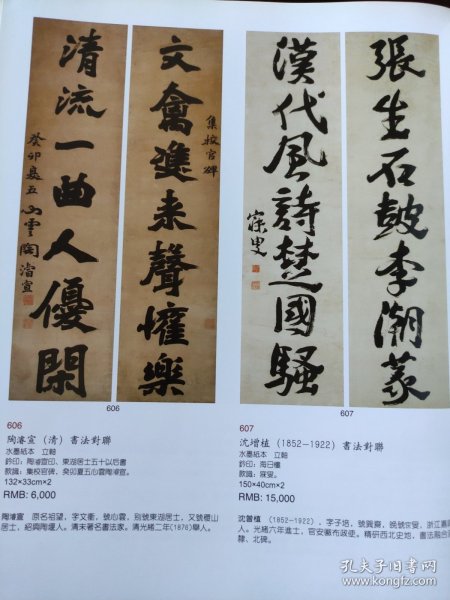 文禽進来聲懽樂
集校官碑
清流一曲人優閑
癸卯夏五心雲陶濬宣
張生石鼓李潮篆
漢代風詩楚國騷
寐叟
606
607
606
陶濬宣（清）書法對聯
水墨紙本 立軸
鈐印：陶濬宣印、東湖居士五十以后書
款識：集校官碑，癸卯夏五心雲陶濬宣。
132×33cm×2
RMB: 6,000
陶濬宣 原名祖望，字文衝，號心雲，別號東湖居士，又號稷山
居士，紹興陶堰人。清末著名書法家。清光緒二年(1876)舉人。
607
沈增植（1852-1922）書法對聯
水墨紙本 立軸
鈐印：海日樓
款識：寐叟。
150×40cm×2
RMB: 15,000
沈曾植（1852-1922），字子培，號巽齋，晚號寐叟，浙江嘉
人。光緒六年進士，官安徽布政使。精研西北史地，書法融合
隸、北碑。
孔夫子旧书网